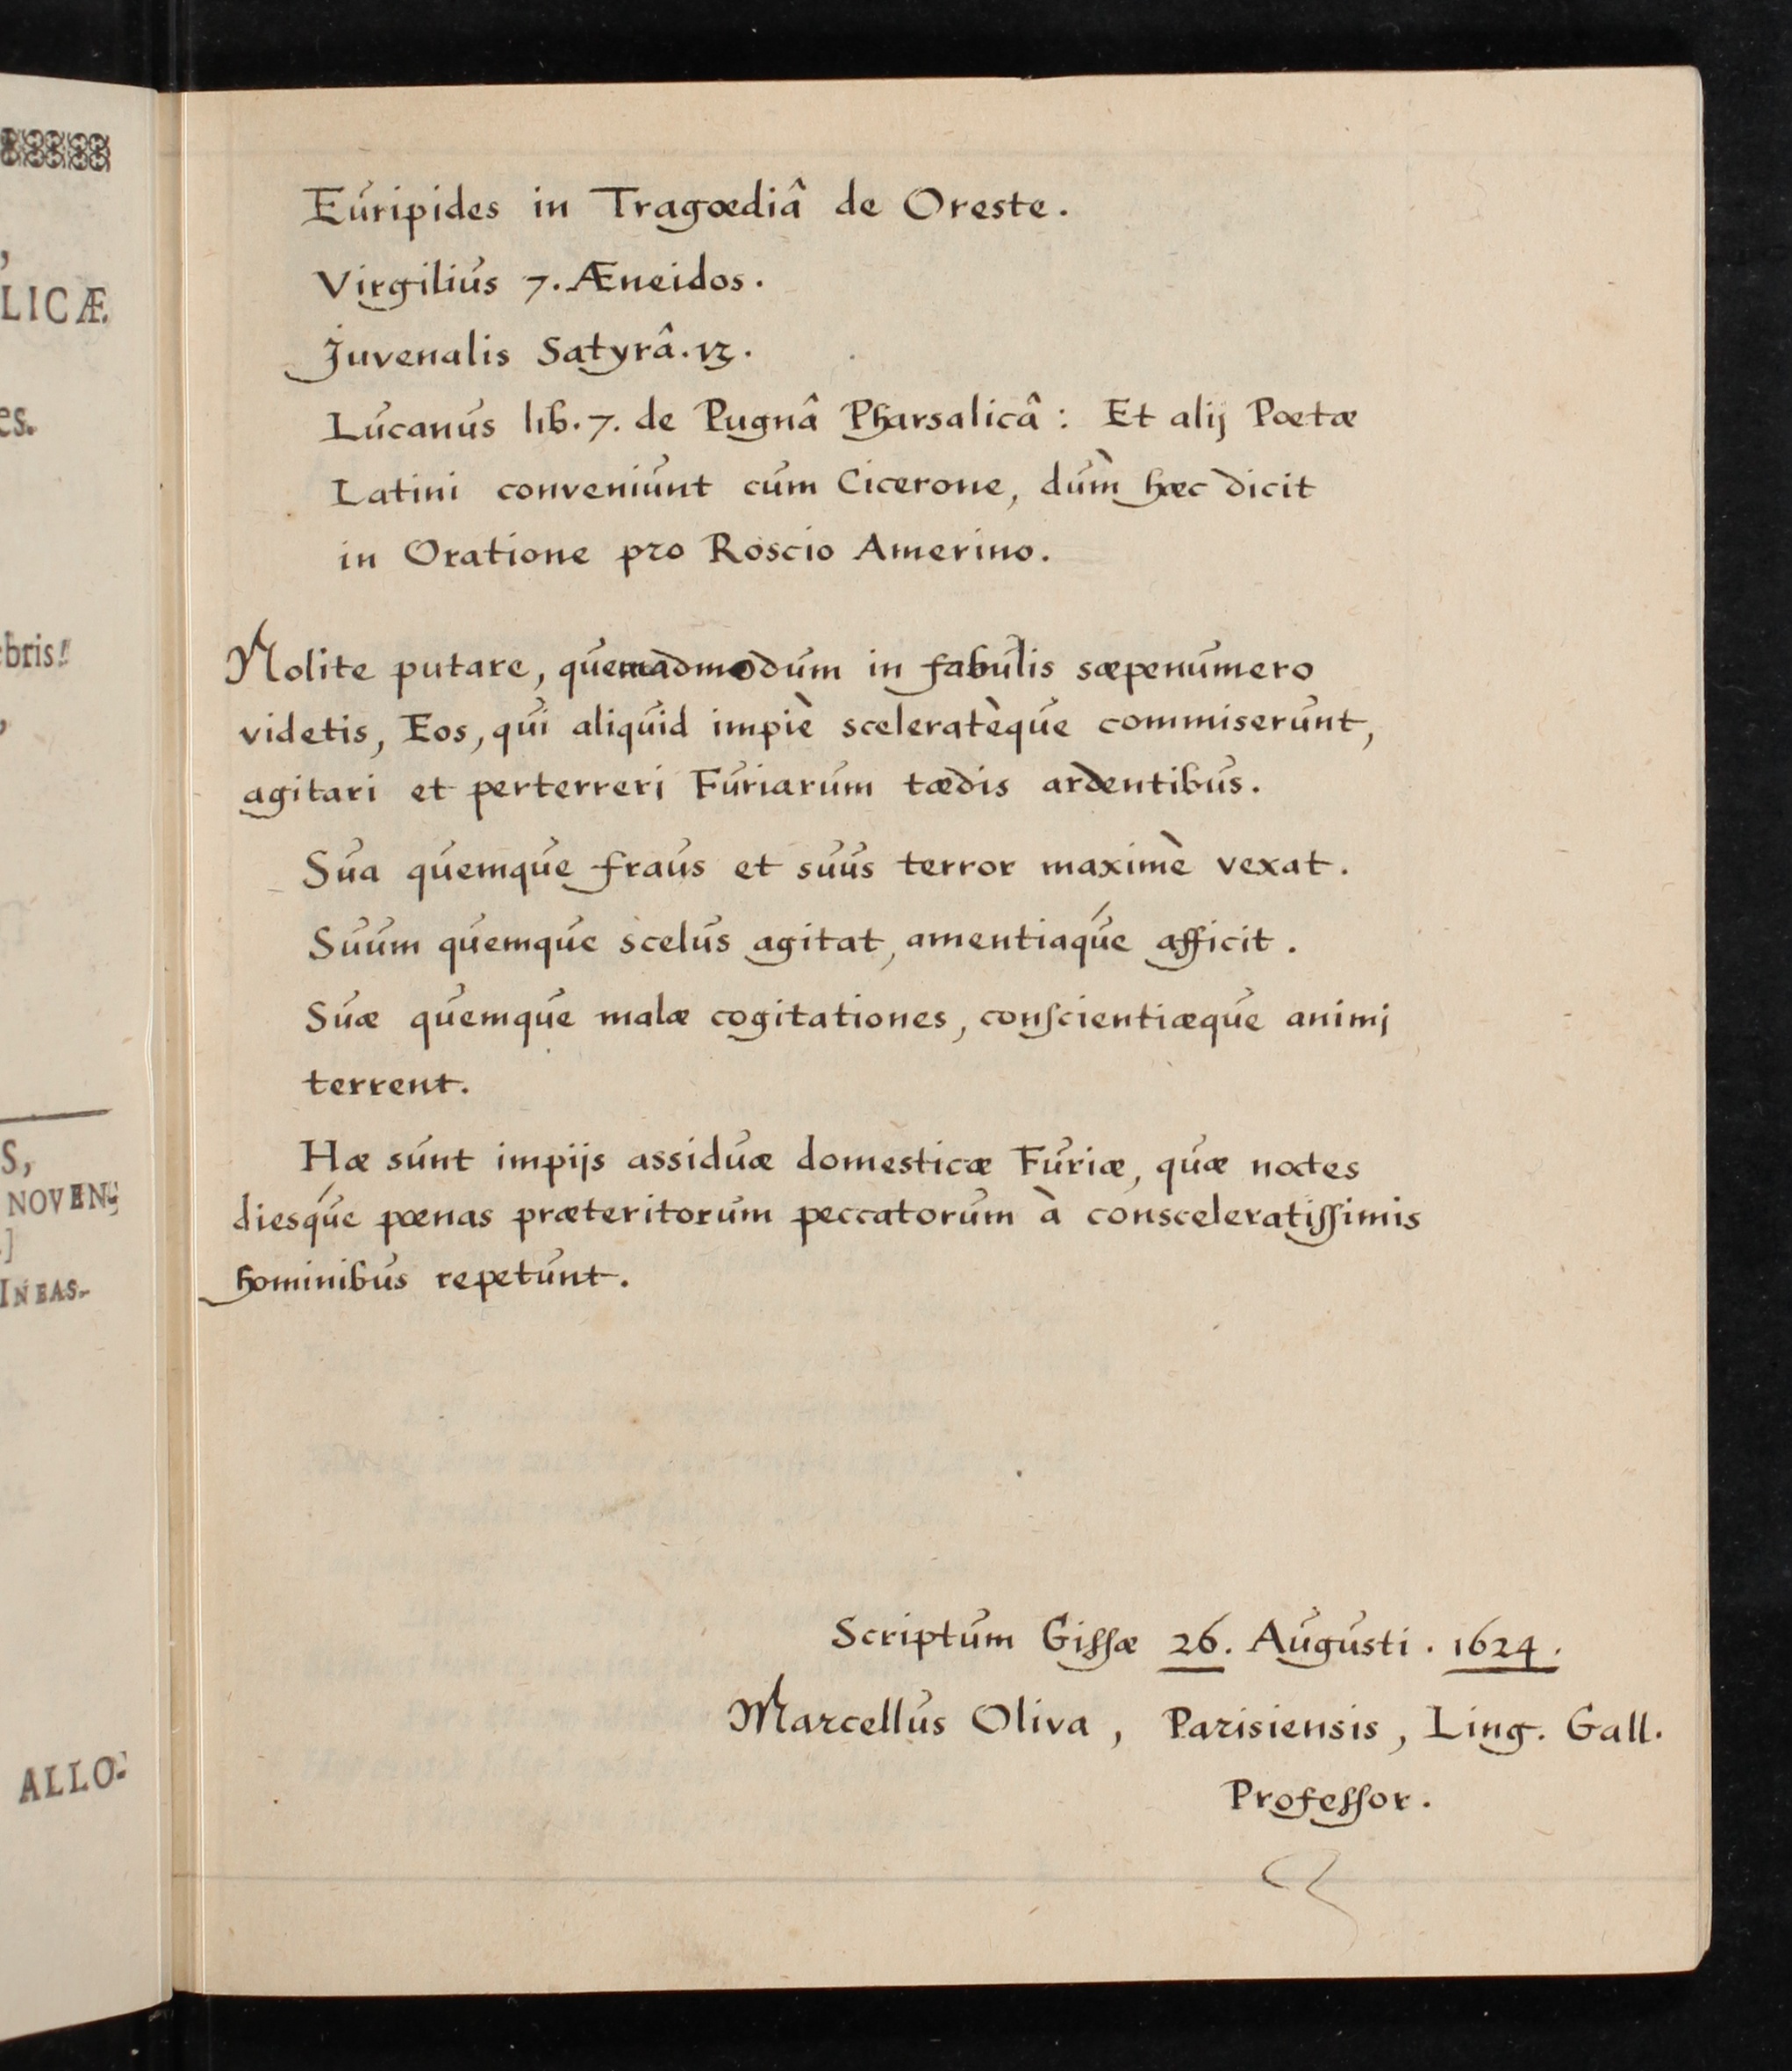 LICÆ
es.
ebris!
S,
NOVEN
INEAS.
ALLO
Euripides in Tragœdiâ de Oreste.
Virgilius 7. Æneidos.
Juvenalis Satyrâ. 13.
Lucanus lib. 7. de Pugnâ Pharsalicâ : Et alij Poetæ
Latini conveniunt cum Cicerone, dùm hæc dicit
in Oratione pro Roscio Amerino.
Nolite putare, quemadmodum in fabulis sæpenumero
videtis, Eos, qui aliquid impiè sceleratèque commiserunt,
agitari et perterreri Furiarum tædis ardentibus.
Sua quemque fraus et suus terror maximè vexat.
Suum quemque scelus agitat, amentiaqúe afficit.
Suæ quemque malæ cogitationes, conſcientiæque animj
terrent.
Hæ sunt impijs assiduæ domesticæ Furiæ, quæ noctes
diesqúe pœnas præteritorum peccatorum à consceleratiſſimis
hominibus repetunt.
Scriptum Giſſæ 26. Augusti. 1624.
Marcellus Oliva, Parisiensis, Ling. Gall.
Profeſſor.